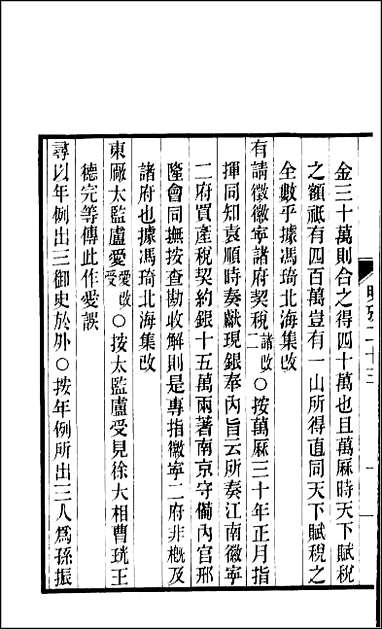 金三十萬則合之得四十萬也且萬厤時天下賦稅
之額祇有四百萬豈有一山所得直同天下賦稅之
全數乎據馮琦北海集改
有請徵徽寧諸府契稅二諸改〇按萬厤三十年正月指
揮同知袁順時奏獻現銀奉內旨云所奏江南徽寧
二府買產稅契約銀十五萬兩著南京守備內官邢
隆會同撫按查勘收解則是專指徽寧二府非概及
諸府也據馮琦北海集改
東厰太監盧愛愛改受〇按太監盧受見徐大相曹珖王
德完等傳此作愛誤
尋以年例出三御史於外〇按年例所出三人爲孫振